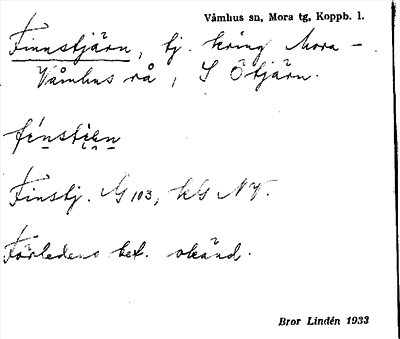 Våmhus sn, Mora tg, Koppb. l.
Finnstjärn, tj. kring Mora -
Våmhus rå, S Ötjärn.
Finstj. G 103, kG NV.
Förledens bet. okänd.
Bror Lindén 1933